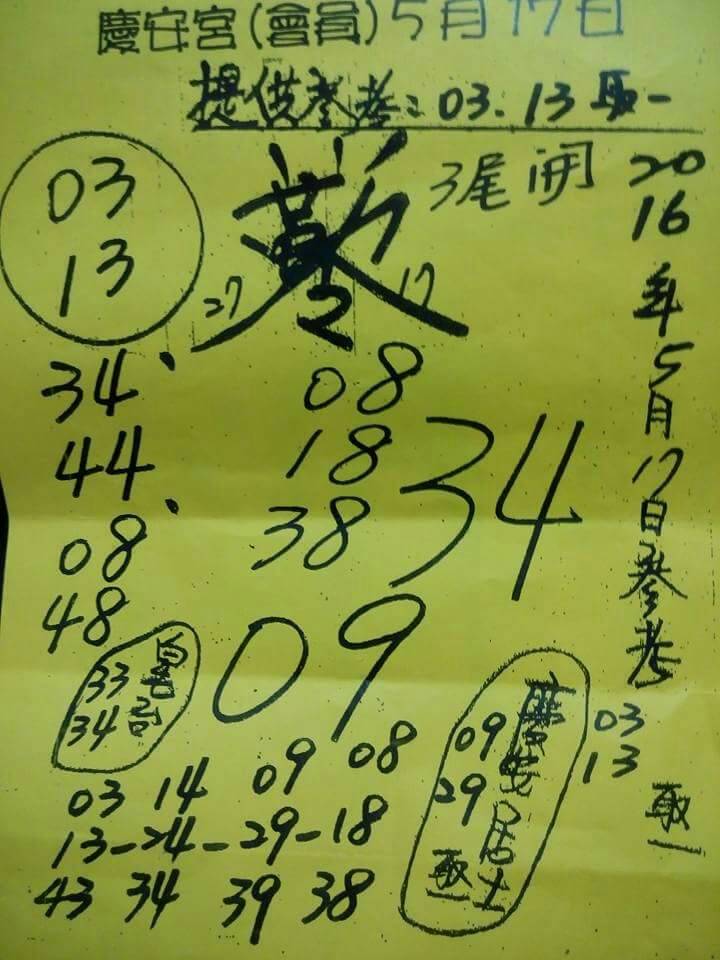 慶安宮(會員)5月17日
提供參考:03.13取一
3尾開
03
13
27 17
34、
44
08、
48
08
18
38
34
09
2016年5月17日參考
03
13
取一
白
33
34
慶安居士
09
29
取一
03 14 09 08
13-24-29-18
43 34 39 38